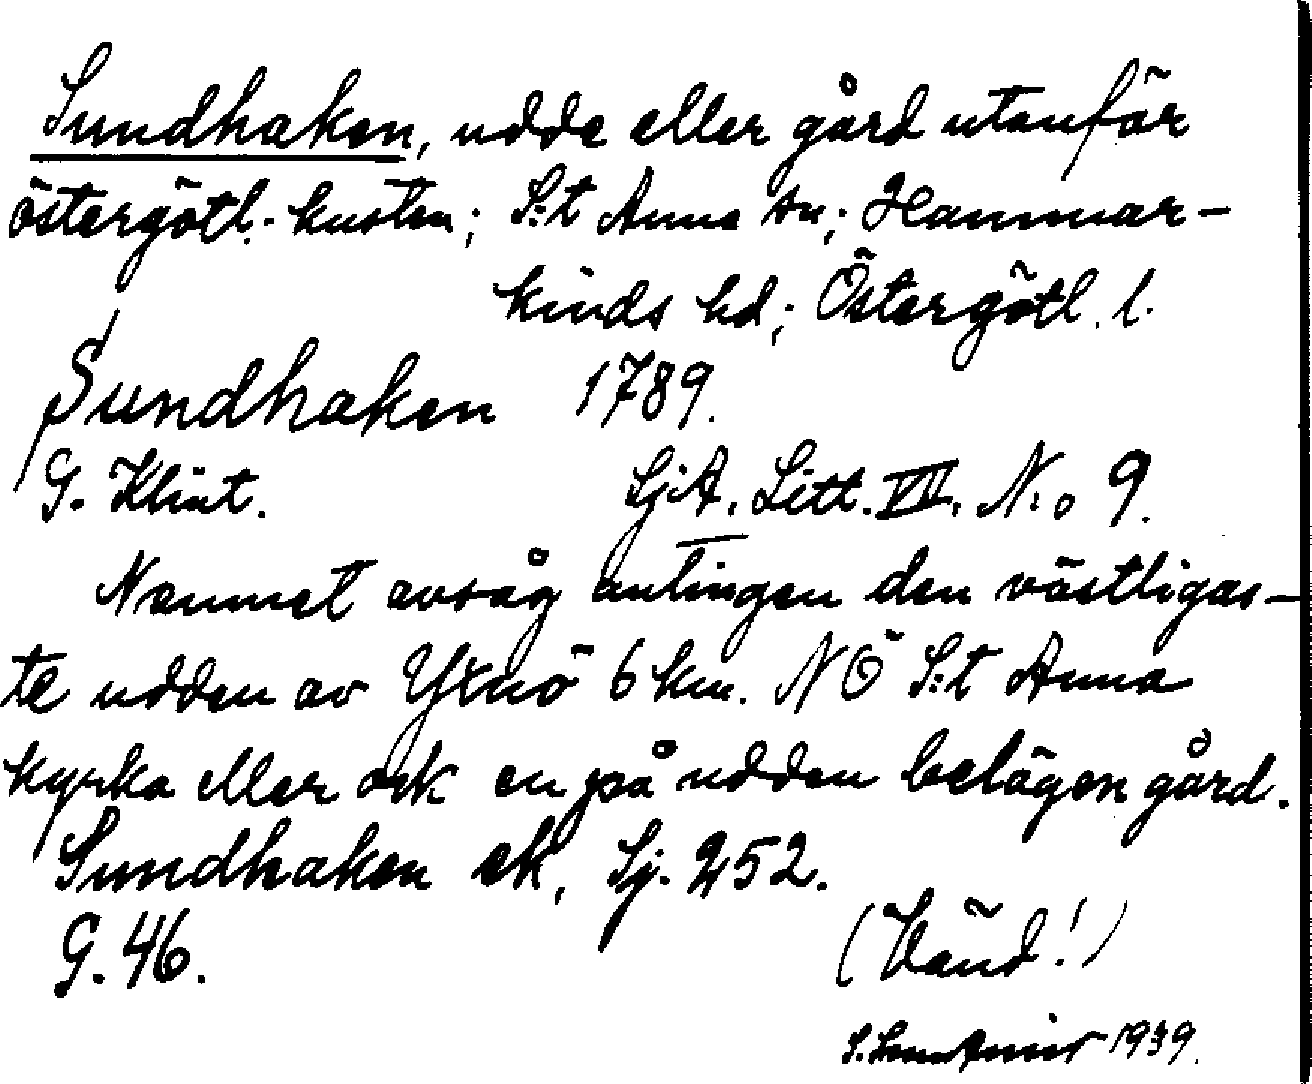 Sundhaken, udde eller gård utanför
östergötl. kusten; S:t Anna sn; Hammar-
kinds hd; Östergötl. l.
Sundhaken 1789.
G. Klint. SjA. Litt. VII. N:o 9.
Namnet avsåg antingen den västligas-
te udden av Yxnö 6 km. NÖ S:t Anna
kyrka eller ock en på udden belägen gård.
Sundhaken ek, Sj. 252.
G. 46. (Vänd!)
S. 1939.